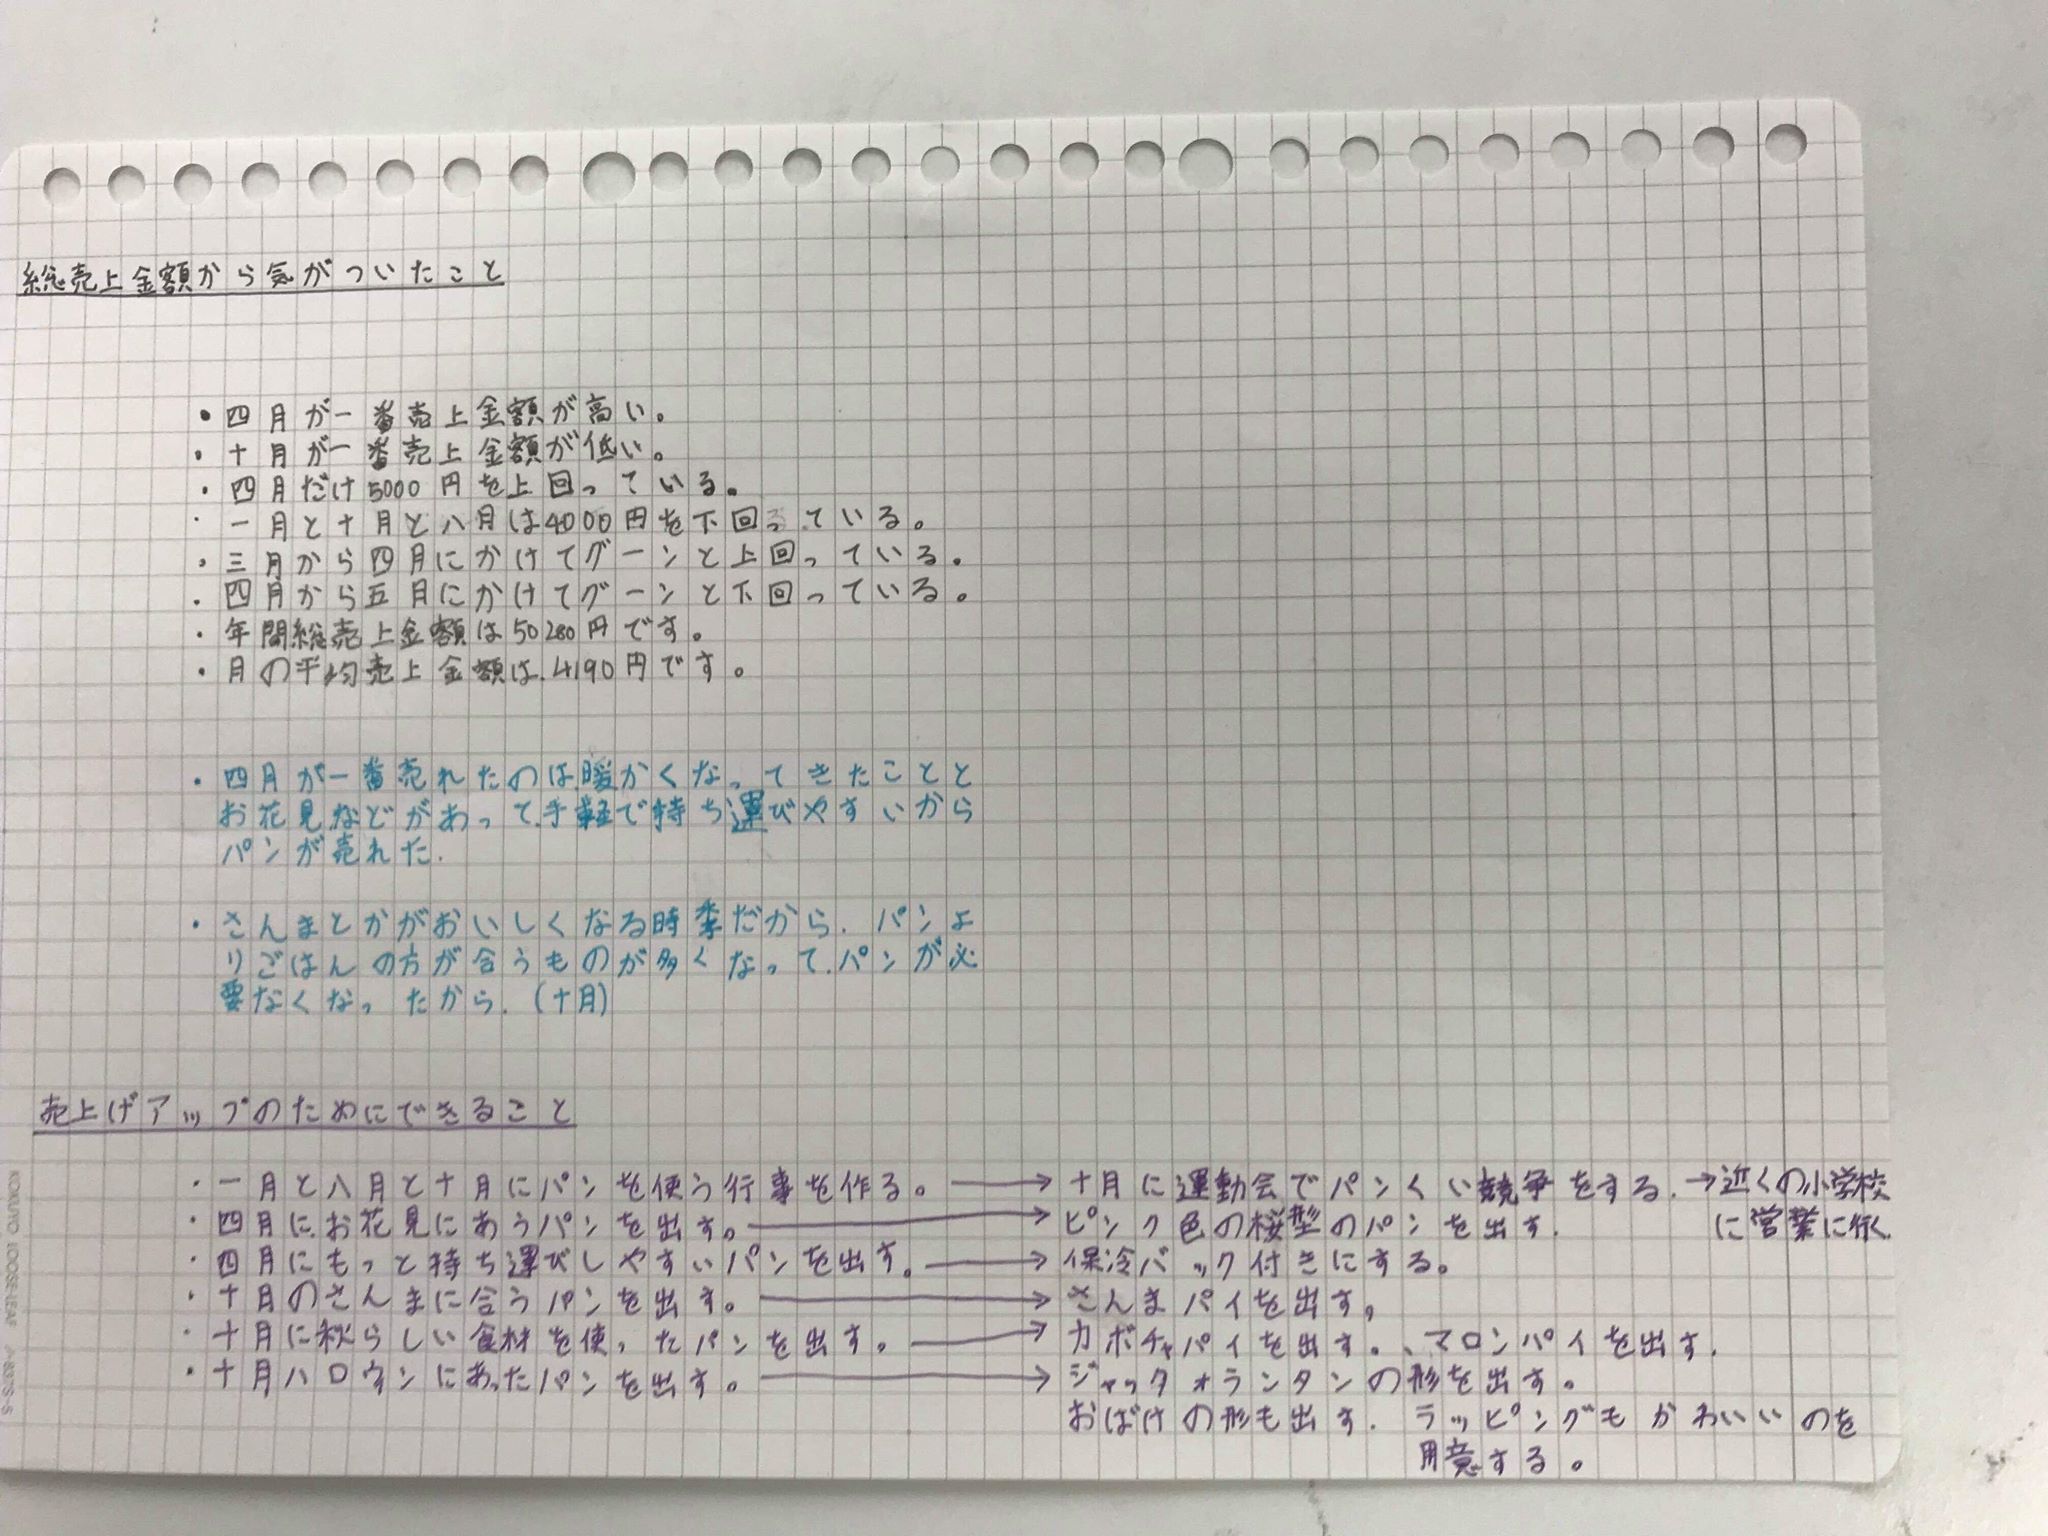 総売上金額から気がついたこと
・四月が一番売上金額が高い。
・十月が一番売上金額が低い。
・四月だけ5000円を上回っている。
・一月と十月と八月は4000円を下回っている。
・三月から四月にかけてグーンと上回っている。
・四月から五月にかけてグーンと下回っている。
・年間総売上金額は50280円です。
・月の平均売上金額は、4190円です。
・四月が一番売れたのは、暖かくなってきたことと
お花見などがあって、手軽で持ち運びやすいから
パンが売れた.
・さんまとかがおいしくなる時季だから、パンよ
りごはんの方が合うものが多くなって、パンが必
要なくなったから.(十月)
売上げアップのためにできること
・一月と八月と十月にパンを使う行事を作る。→十月に運動会でパンくい競争をする.→近くの小学校
に営業に行く
・四月に、お花見にあうパンを出す。→ピンク色の桜型のパンを出す.
・四月にもっと持ち運びしやすいパンを出す。→保冷バック付きにする。
・十月のさんまに合うパンを出す。→さんまパイを出す。
・十月に秋らしい食材を使ったパンを出す。→カボチャパイを出す。、マロンパイを出す.
・十月ハロウィンにあったパンを出す。→ジャックォランタンの形を出す。
おばけの形も出す. ラッピングもかわいいのを
用意する。
KOKUYO LOOSE-LEAF